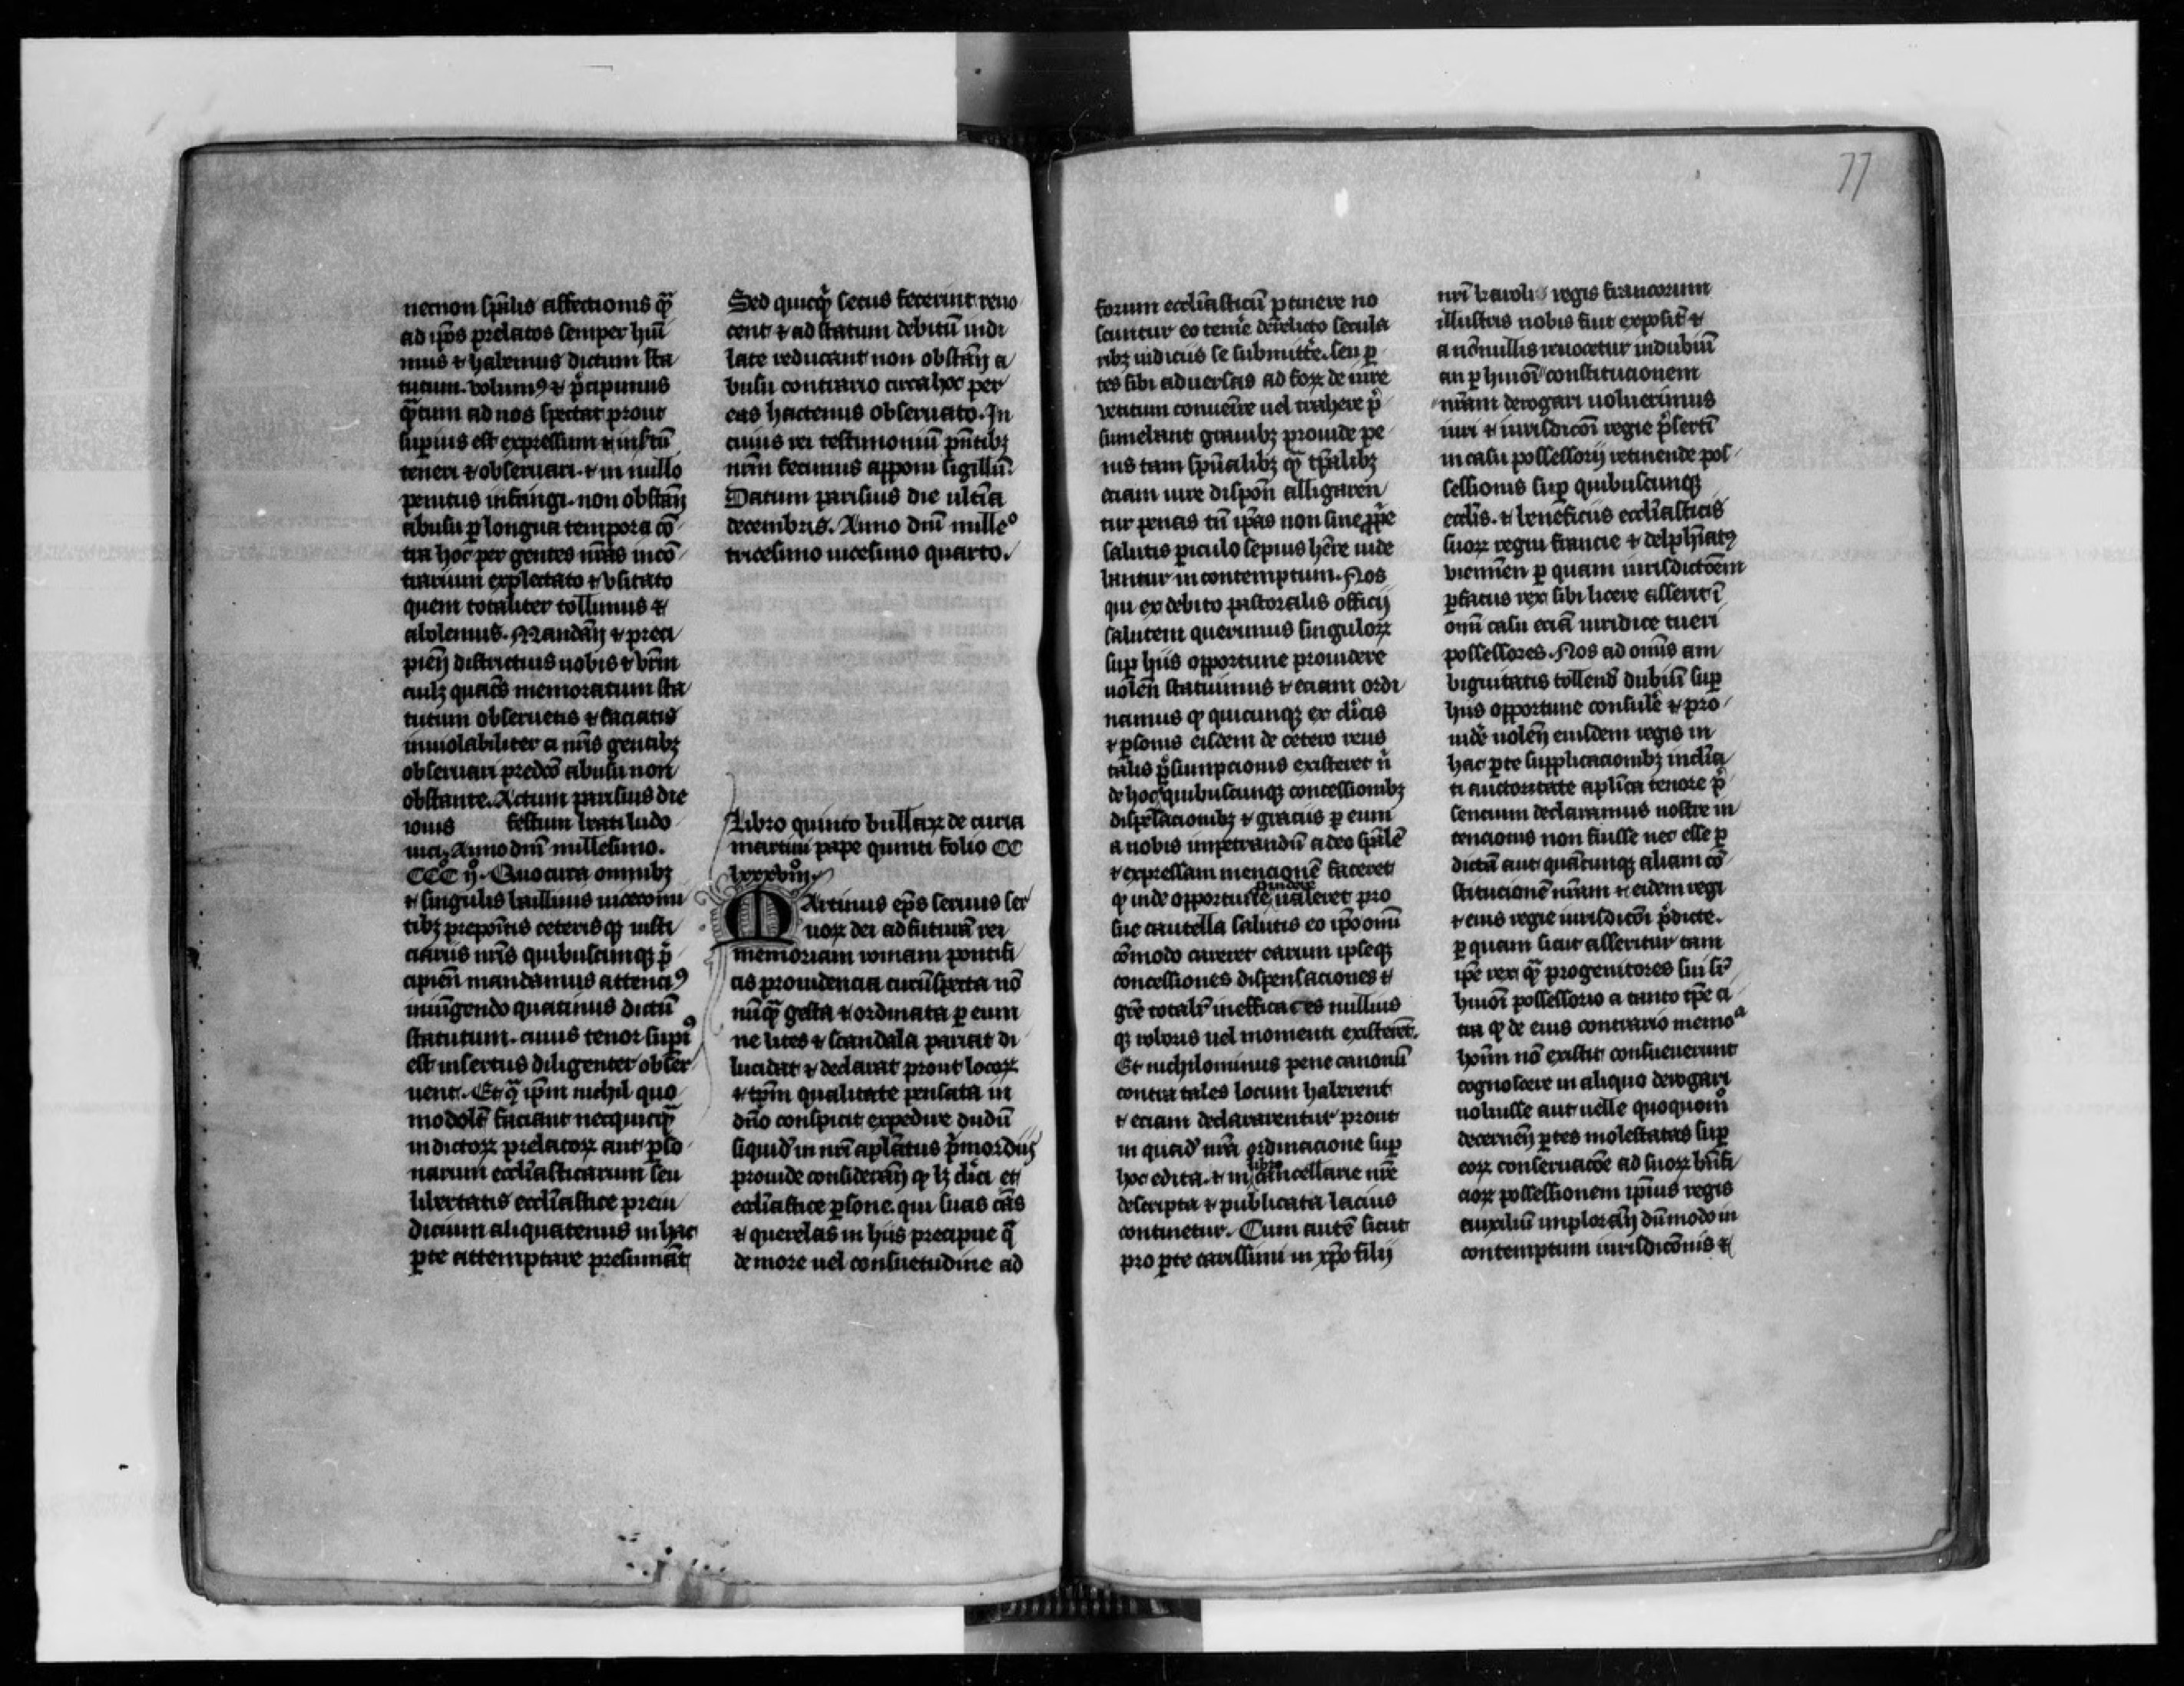 necnon sp̄alis affectionis q̄
ad ip̄os prelatos semper hui
mus ⁊ habemus dictum sta
tutum. volumꝰ ⁊ p̄cipimus
q̄tum ad nos spectat prout
superius est expressum ⁊ insitū
teneri ⁊ obseruari. ⁊ in nullo
penitus infringi. non obstan̄
abusu ꝑ longua tempora cō
tra hoc per gentes nr̄as incō
trarium explectato ⁊ vsitato
quem totaliter tollimus ⁊
abolemus. Mandan̄ ⁊ preci
pien̄ districtius uobis ⁊ vr̄m
cuilꝫ quatꝰ memoratum sta
tutum obseruetis ⁊ faciatis
inuiolabiliter a nr̄is gentibꝫ
obseruari predcō abusu non
obstante. Actum parisius die
iouis festum beati ludo
uici. Anno dn̄i millesimo.
CCC ij°. Quocirca omnibꝫ
⁊ singulis bailliuis uicecomi
tibꝫ prepōitis ceteris qꝫ iusti
ciariis nr̄is quibuscumqꝫ p̄
cipien̄ mandamus attenciꝰ
iniūgendo quatinus dictū
statutum. cuius tenor supiꝰ
est insertus diligenter obser
uent. Et q̄ ip̄m nichil quo
modolꝫ faciant nec quicq̄
in dictoꝝ prelatoꝝ aut ꝑso
narum eccl̄iasticarum seu
libertatis eccl̄iastice preiu
dicium aliquatenus in hac
ꝑte attemptare presumāt
Sed quicq̄ secus fecerint reuo
cent ⁊ ad statum debitū indi
late reducant non obstan̄ a
busu contrario circa hoc per
eas hactenus obseruato. In
cuius rei testimoniū pn̄tibꝫ
nr̄m fecimus apponi sigillū.
Datum parisius die ultīa
decembris. Anno dn̄i mille°
tricesimo uicesimo quarto.
Libro quinto bullaꝝ de curia
martini pape quinti folio CC
lxxxviij.
MArtinus ep̄s seruus ser
uoꝝ dei ad futurā rei
memoriam romani pontifi
cis prouidencia circūspecta nō
nūq̄ gesta ⁊ ordinata ꝑ eum
ne lites ⁊ scandala pariat di
lucidat ⁊ declarat prout locoꝝ
⁊ tp̄m qualitate pensata in
dn̄o conspicit expedire dudū
siquid̄ in nr̄i apl̄atus p̄mordiis
prouide consideran̄ ꝙ lꝫ dicta et
eccl̄iastice ꝑsone. qui suas cās
⁊ querelas in hiis precipue q̄
de more uel consuetudine ad
forum eccl̄iasticū ꝑtinere no
scuntur eo temē derelicto secula
ribꝫ iudiciis se submittē. seu ꝑ
tes sibi aduersas ad foꝝ de iure
vetitum conuenīre uel trahere p̄
sumebant grauibꝫ prouide pe
nis tam sp̄ualibꝫ q̄ tp̄alibꝫ
eciam iure dispon̄ alligaren
tur penas tn̄ ip̄as non sine ꝓpe
salutis ꝑiculo sepius hēre uide
bantur in contemptum. Nos
qui ex debito pastoralis officij
salutem querimus singuloꝝ
suꝑ hiis opportune prouidere
uolen̄ statuimus ⁊ eciam ordi
namus ꝙ quicunqꝫ ex dictis
⁊ ꝑsonis eisdem de cetero reus
talis p̄sumpcionis existeret n̄
de hoc quibuscunqꝫ concessionibꝫ
dispēsacionibꝫ ⁊ graciis ꝑ eum
a nobis impetrandū adeo sp̄alē
⁊ expressam mencionē faceret
ꝙ inde opportune prouidere ualeret pro
sue cautella salutis eo ip̄o omī
cōmodo careret earum ipseqꝫ
concessiones dispensaciones ⁊
grē totalr̄ inefficaces nullius
qꝫ roboris uel momenti existerēt.
Et nichilominus pene canonū
contra tales locum haberent
⁊ eciam declararentur prout
in quad̄ nr̄a ordinacione suꝑ
hoc edita. ⁊ in libro cancellarie nr̄e
descripta ⁊ publicata lacius
continetur. Cum autē sicut
pro ꝑte carissimi in xp̄o filij
nr̄i karoli regis francorum
illustris nobis fuit exposit̄ ⁊
a nōnullis reuocetur in dubiū
an ꝑ hmōi constitucionem
nr̄am derogari uoluerimus
iuri ⁊ iurisdicōi regie p̄sertī
in casu possessorij retinende pos
sessionis suꝑ quibuscunqꝫ
eccl̄is. ⁊ beneficiis eccl̄iasticis
suoꝝ regni francie ⁊ delphīatꝰ
viennen̄ ꝑ quam iurisdictōem
p̄fatus rex sibi licere asserit ī
omī casu eciā iuridice tueri
possessores. Nos ad omīs am
biguitatis tollend̄ dubiū suꝑ
hiis opportune consulē ⁊ pro
uidē uolen̄ eiusdem regis in
hac ꝑte supplicacionibꝫ inclīa
ti auctoritate aplīca tenore p̄
sencium declaramus nostre in
tencionis non fuisse nec esse ꝑ
dictā aut quācunqꝫ aliam cō
stitucionē nr̄am ⁊ eidem regi
⁊ eius regie iurisdicōi p̄dicte.
ꝑ quam sicut asseritur tam
ip̄e rex q̄ progenitores sui sr̄
hmōi possessorio a tanto tp̄e ci
tra ꝙ de eius contrario memoᵃ
hoīm nō existit consueuerunt
cognoscere in aliquo derogari
uoluisse aut uelle quoquom°
decernen̄ ꝑtes molestatas suꝑ
eoꝝ conseruacōe ad suoꝝ bn̄fi
cioꝝ possessionem ip̄ius regis
auxiliū imploran̄ dūmodo in
contemptum iurisdicōnis ⁊
77